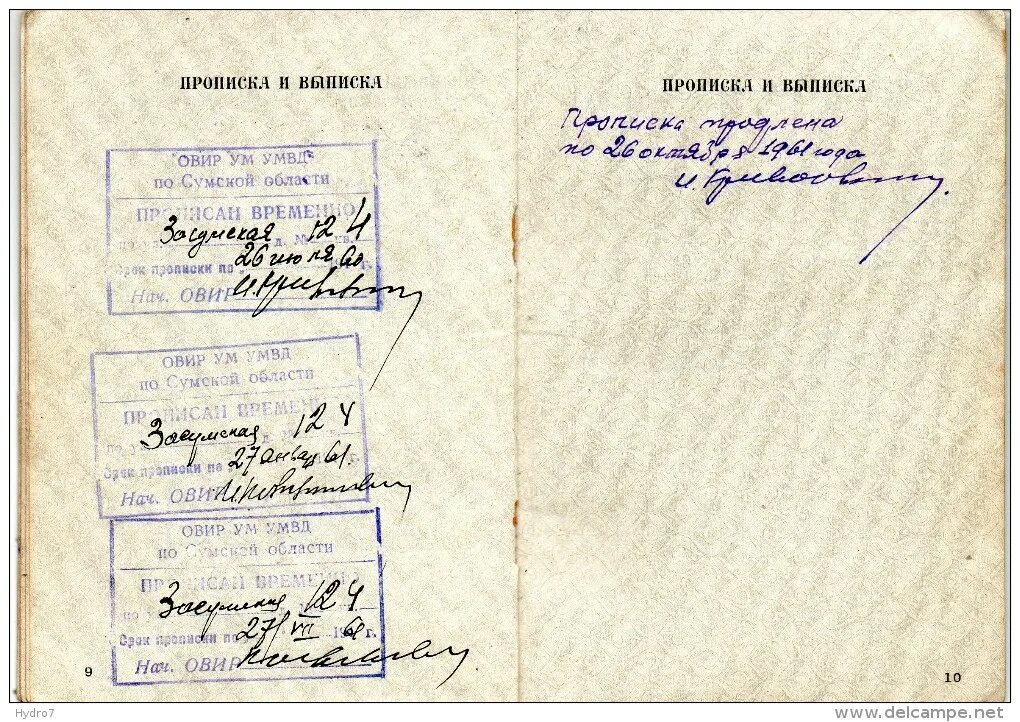 ПРОПИСКА И ВЫПИСКА
ОВИР УМ УМВД
по Сумской области
ПРОПИСАН ВРЕМЕННО
Засумская д. № 12 кв. 4
Срок прописки по 26 июля 1960 г.
Нач. ОВИР
ОВИР УМ УМВД
по Сумской области
ПРОПИСАН ВРЕМЕННО
по ул. Засумская 12 4
Срок прописки по 27 января 61.
Нач. ОВИР
ОВИР УМ УМВД
по Сумской области
ПРОПИСАН ВРЕМЕННО
по ул. Засумская 12 4
Срок прописки по 27/VII 1961 г.
Нач. ОВИР
9
ПРОПИСКА И ВЫПИСКА
Прописка продлена
по 26 октября 1961 года
10
Hydro7
www.delcampe.net